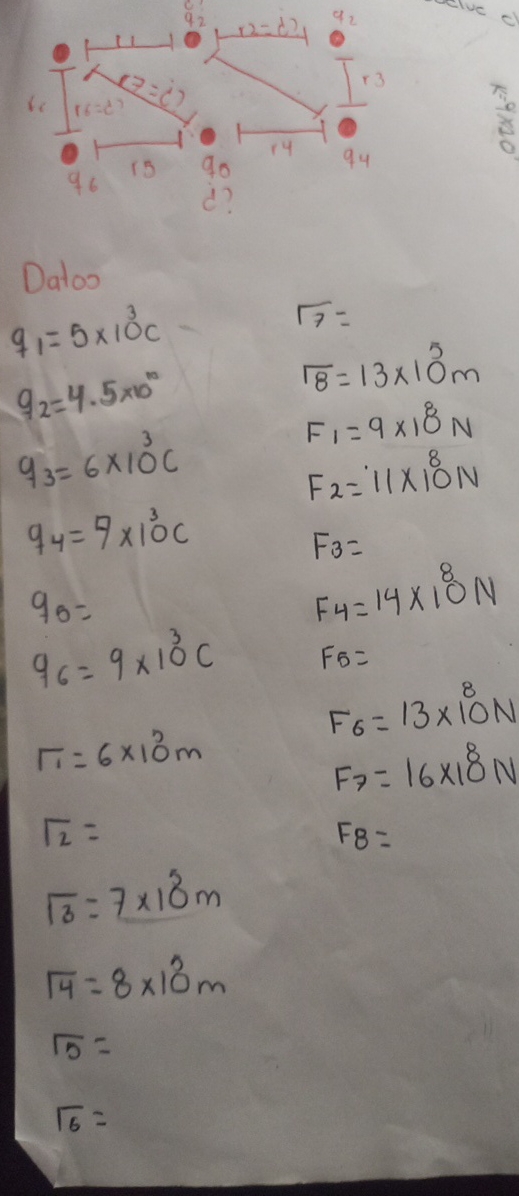 ¿?
q2
q2
r1
r2=¿?
r7=¿?
r3
r6=¿?
r5
r4
q6
q5
q4
¿?
Datos
q1=5x10³C
q2=4.5x10
q3=6x10³C
q4=7x10³C
q5=
q6=9x10³C
r1=6x10 m
r2=
r3=7x10 m
r4=8x10 m
r5=
r6=
r7=
r8=13x10⁵m
F1=9x10⁸N
F2=11x10⁸N
F3=
F4=14x10⁸N
F5=
F6=13x10⁸N
F7=16x10⁸N
F8=